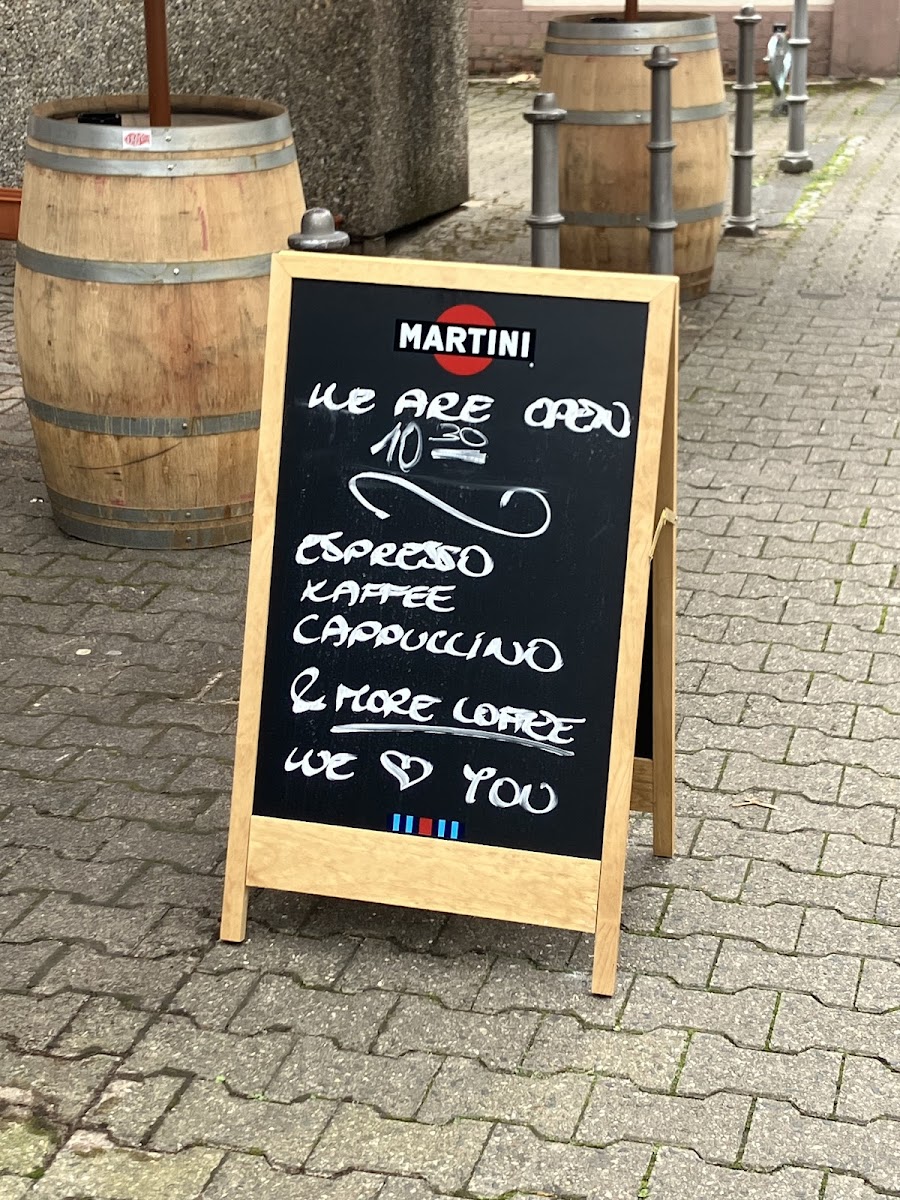 MARTINI
WE ARE OPEN
10 30
ESPRESSO
KAFFEE
CAPPUCCINO
& MORE COFFEE
WE ♡ YOU